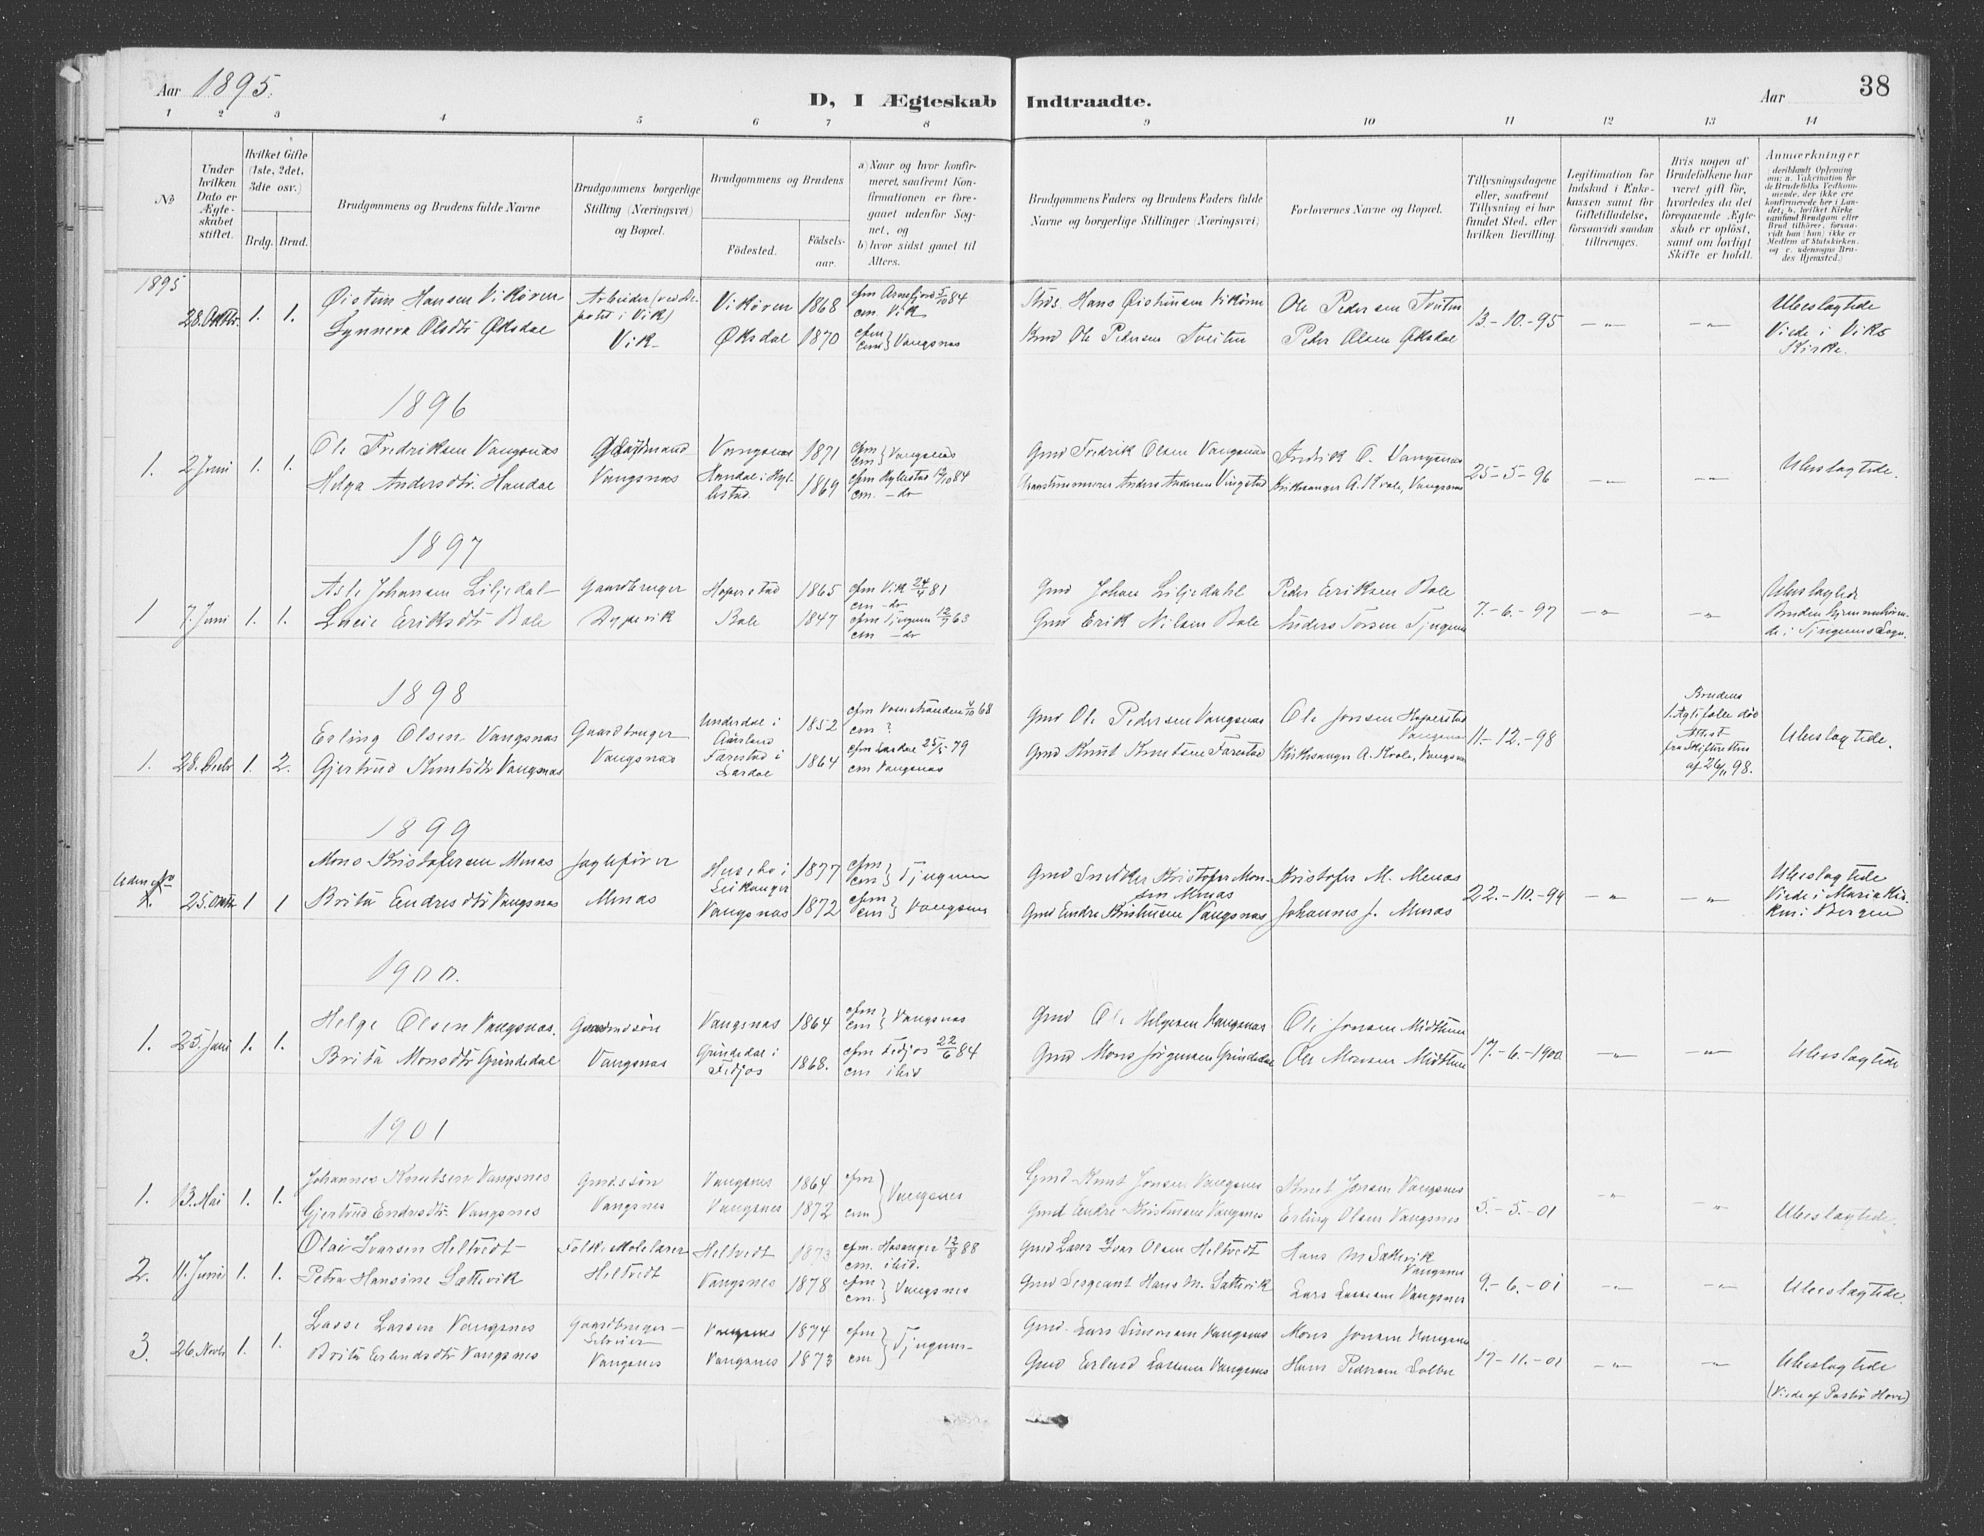 Aar 1895.
D, I Ægteskab Indtraadte.
Aar
38
1 2 3 4 5 6 7 8 9 10 11 12 13 14
No
Under hvilken Dato er Ægteskabet stiftet.
Hvilket Gifte (1ste, 2det, 3die osv.)
Brdg. Brud.
Brudgommens og Brudens fulde Navne
Brudgommens borgerlige Stilling (Næringsvei) og Bopæl.
Brudgommens og Brudens
Födested.
Födselsaar.
a) Naar og hvor konfirmeret, saafremt Konfirmationen er foregaaet udenfor Sognet, og
b) hvor sidst gaaet til Alters.
Brudgommens Faders og Brudens Faders fulde Navne og borgerlige Stillinger (Næringsvei)
Forlovernes Navne og Bopæl.
Tillysningsdagene eller, saafremt Tillysning ei har fundet Sted, efter hvilken Bevilling.
Legitimation for Indskud i Enkekassen samt for Giftetilladelse, forsaavidt saadan tiltrænges.
Hvis nogen af Brudefolkene har været gift för, hvorledes da det foregaaende Ægteskab er oplöst, samt om lovligt Skifte er holdt.
Anmærkninger
1895
28. Oktbr. 1. 1.
Øistein Hansen Vikøren
Synneva Olsdtr Øksdal
Arbeider
Vik
Vikøren 1868
Øksdal 1870
cfm Arnefjord 5/10 84
cm. Vik
cfm cm } Vangsnes
Hans Øistensen Vikøren
Gmd Ole Pedersen Tveiten
Ole Pedersen Tveiten
Peder Olsen Øksdal
13-10-95
Ubeslagtede
Viede i Viks Kirke.
1896
1. 2 Juni 1. 1.
Ole Fredriksen Vangsnes
Helga Andersdtr. Handal
Vangsnæs
Vangsnæs 1871
Handal i Hylestad 1869
cfm cm } Vangsnes
cfm Hylestad 12/10 84
cm. - do
Gmd Fredrik Olsen Vangsnæs
Anders Andersen Vingstad
Fredrik O. Vangsnæs
Kirksanger A. Kvale, Vangsnæs
25-5-96
Ubeslagtede.
1897
1 7. Juni 1. 1.
Asle Johansen Liljedal
Lucie Eriksdtr Bale
Gaardbruger
Dypevik
Hoperstad 1865
Bale 1847
cfm Vik 24/4 81
cm - do
cfm Tjugum 12/7 63
cm - do
Gmd Johan Liljedahl
Gmd Erik Nilsen Bale
Peder Eriksen Bale
Anders Torsen Tjugum
7.-6-97
Ubeslagtede
Bruden hjemmehørende i Tjugums Sogn.
1898
1. 28. Decbr 1. 2.
Erling Olsen Vangsnæs
Gjertrud Knutsdtr Vangsnæs
Gaardbruger
Vangsnæs
Underdal i Aurland 1852
Farestad i Lærdal 1864
cfm Vossestranden 4/10 68
cm ?
cfm Lærdal 25/5 79
cm Vangsnæs
Gmd Ole Pedersen Vangsnæs
Gmd Knut Knutsen Farestad
Ole Jonsen Hoperstad
Vangsnæs
Kirksanger A. Kvale, Vangsnæs
11-12-98
Brudens
1. Ægtefælle død
Attest
fra Skifteretten
af 26/11 98.
Ubeslagtede.
1899
Uden No
25. Oktbr 1 1
Mons Kristofersen Menæs
Brita Endresdtr Vangsnæs
Jagtefører
Menæs
Husebø i Leikanger 1877
Vangsnæs 1872
cfm cm } Tjugum
cfm cm } Vangsnes
Gmd Snedker Kristofer Monsen Menæs
Gmd Endre Kristensen Vangsnæs
Kristofer M. Menæs
Johannes J. Menæs
22.-10.-99
Ubeslagtede
Viede i Mariakirken i Bergen
1900.
1. 25. Juni 1. 1.
Helge Olsen Vangsnæs.
Brita Monsdtr Grindedal
Gaardmdsøn
Vangsnæs
Vangsnæs 1864
Grindedal i Fedjos 1868.
cfm cm } Vangsnæs
cfm Fedjos 22/6 84
cm ibid
Gmd Ole Helgesen Vangsnæs
Gmd Mons Jørgensen Grindedal
Ole Jonsen Midthun
Ole Monsen Midthun
17.-6-1900
Ubeslagtede
1901
1. 13. Mai 1. 1.
Johannes Knutsen Vangsnes
Gjertrud Endresdtr. Vangsnes
Gmdssøn
Vangsnes
Vangsnes 1864
Vangsnes 1872
cfm cm } Vangsnes
Gmd Knut Jonsen Vangsnes
Gmd Endre Kristensen Vangsnes
Knut Jonsen Vangsnes
Erling Olsen Vangsnes
5.-5.-01
Ubeslagtede.
2. 11. Juni 1. 1.
Olai Ivarsen Heltvedt
Petra Hansine Sættevik
Folkeskolelærer
Heltvedt
Heltvedt 1873
Vangsnes 1878
cfm. Hosanger 12/8 88
cm. ibid.
cfm cm. } Vangsnes
Gmd Lærer Ivar Olsen Heltvedt
Gmd Sergeant Hans M. Sættevik
Hans M Sættevik
Vangsnes
Lars Larsen Vangsnes
9.-6.-01
Ubeslagtede.
3. 26. Novbr 1. 1.
Lasse Larsen Vangsnes
Brita Erlendsdtr Vangsnes
Gaardbruger-
Selveier
Vangsnes
Vangsnes 1874
Vangsnes 1873
cfm cm } Tjugum
Gmd. Lars Simonsen Vangsnes
Gmd Erlend Larsen Vangsnes
Mons Jonsen Vangsnes
Hans Pedersen
17-11.-01
Ubeslagtede
(Viede af Pastor Hove)